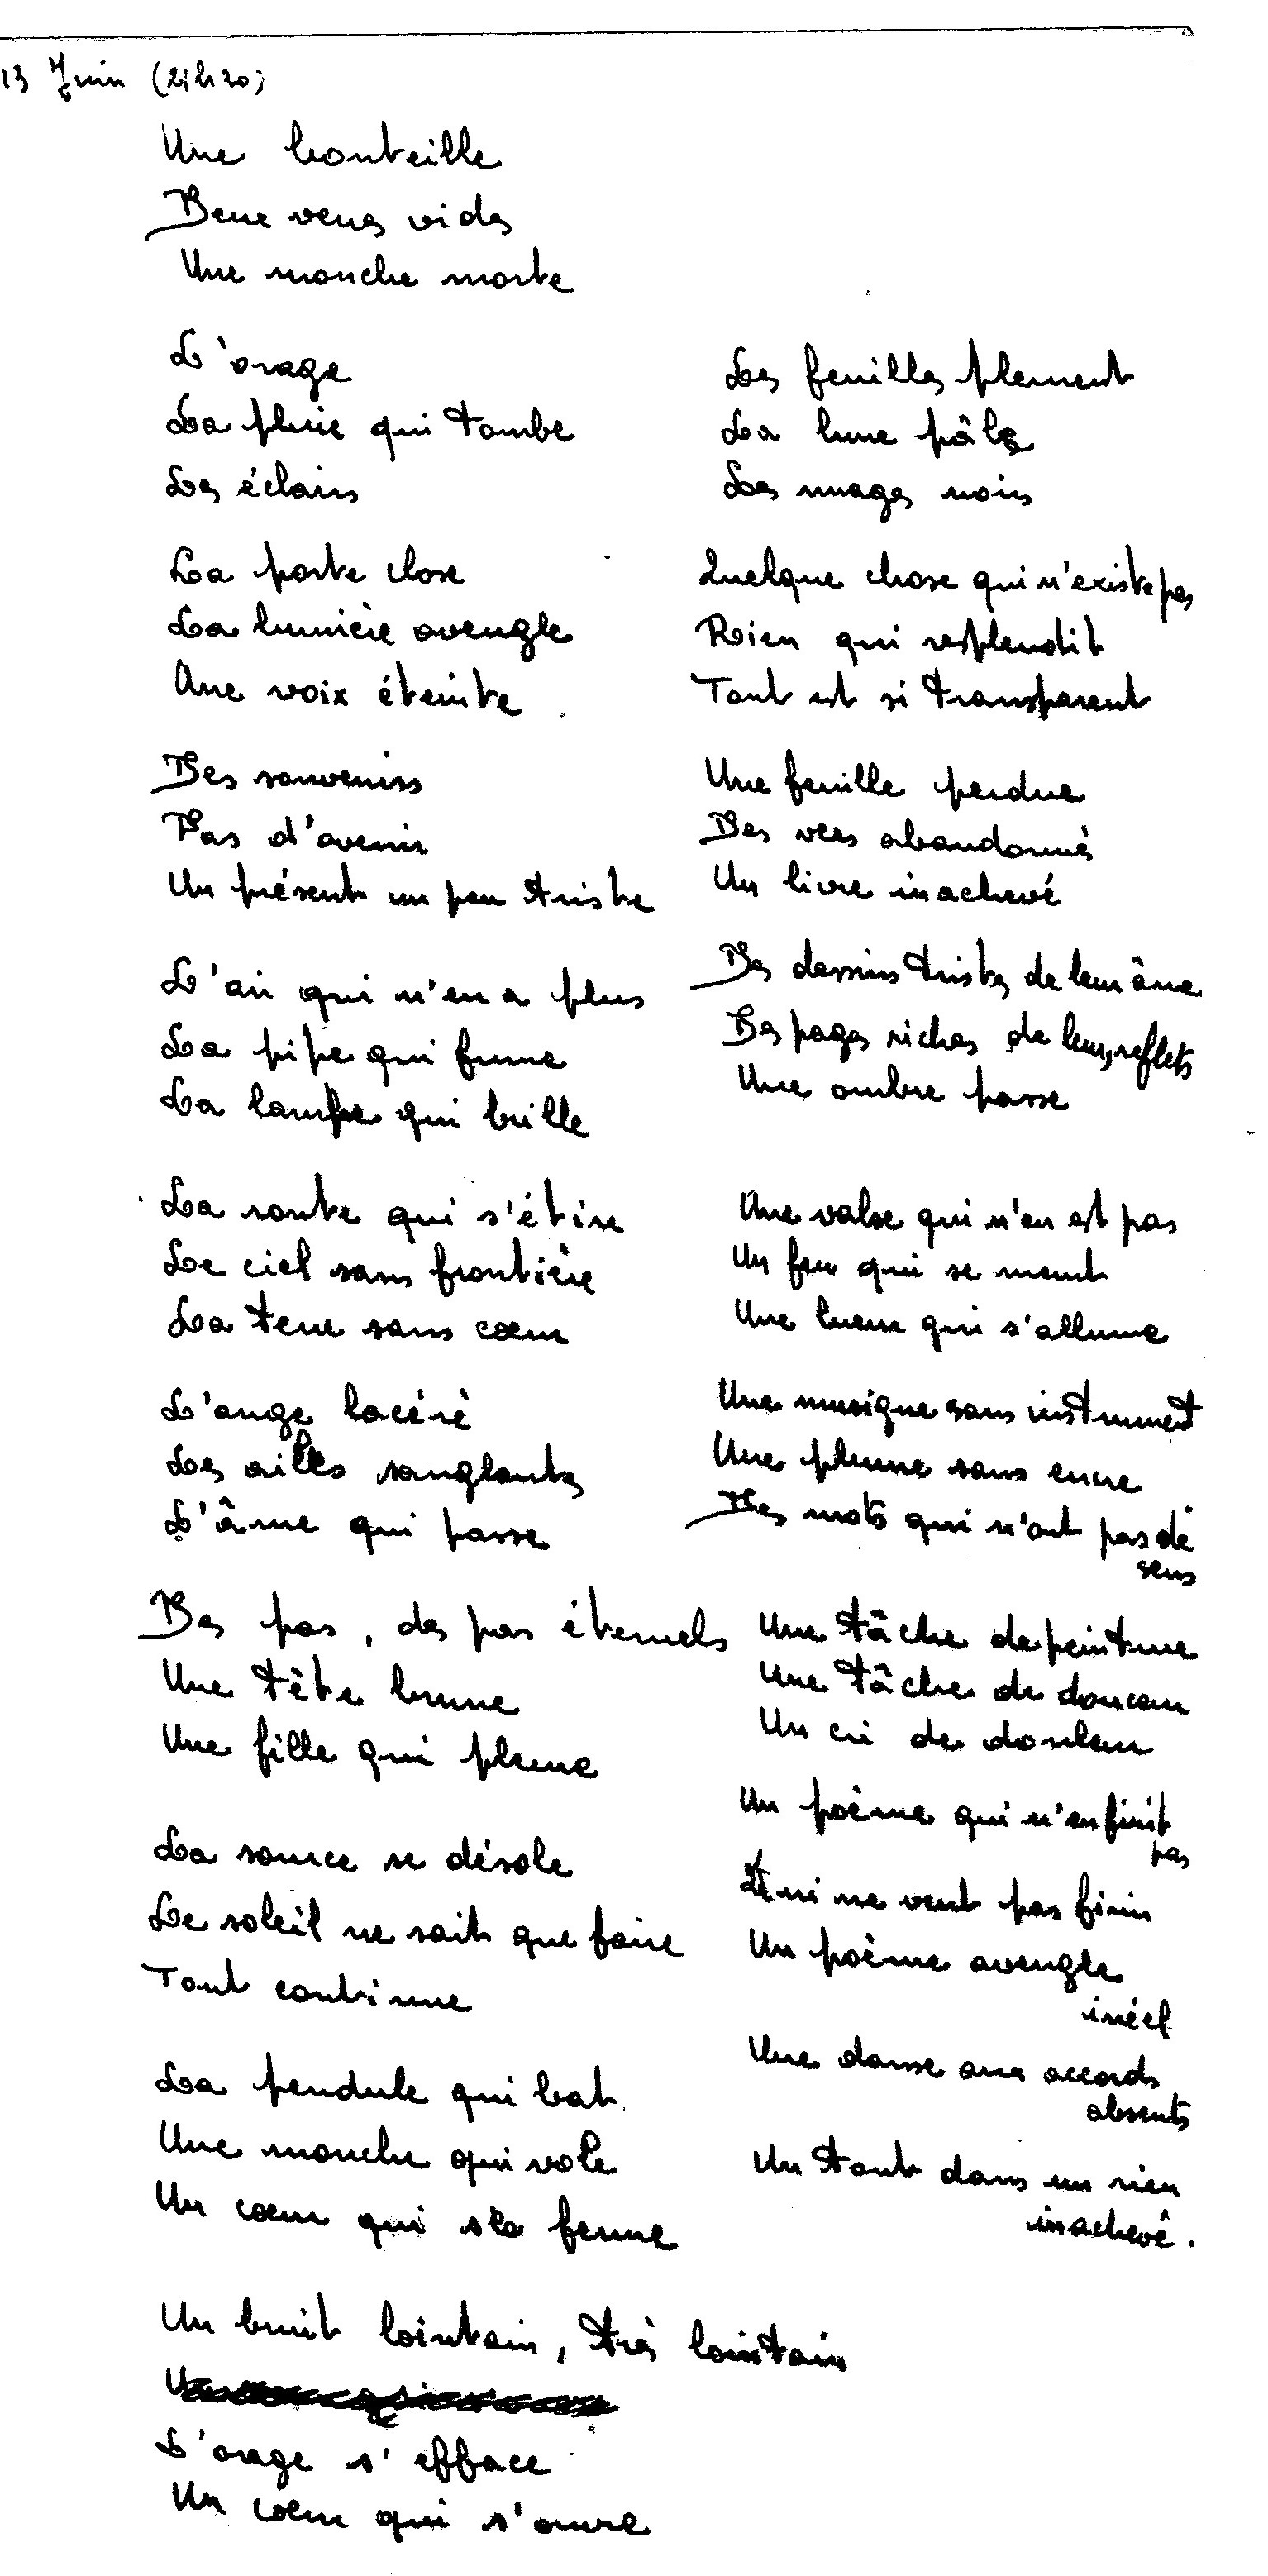 13 Juin (21h20)
Une bouteille
Deux verres vides
Une mouche morte
L'orage
La pluie qui tombe
Les éclairs
La porte close
La lumière aveugle
Une voix éteinte
Des souvenirs
Pas d'avenir
Un présent un peu triste
L'air qui n'en a plus
La pipe qui fume
La lampe qui brille
La route qui s'étire
Le ciel sans frontière
La terre sans cœur
L'ange lacéré
Les ailes sanglantes
L'âme qui passe
Des pas, des pas éternels
Une tête brune
Une fille qui pleure
La source se désole
Le soleil ne sait que faire
Tout continue
La pendule qui bat
Une mouche qui vole
Un cœur qui se ferme
Un bruit lointain, très lointain
L'orage s'efface
Un cœur qui s'ouvre
Les feuilles pleurent
La lune pâle
Les nuages noirs
Quelque chose qui n'existe pas
Rien qui resplendit
Tout est si transparent
Une feuille perdue
Des vers abandonnés
Un livre inachevé
Des dessins tristes de leur âme
Des pages riches de leurs reflets
Une ombre passe
Une valse qui n'en est pas
Un feu qui se meurt
Une lueur qui s'allume
Une musique sans instrument
Une plume sans encre
Des mots qui n'ont pas de
sens
Une tâche de peinture
Une tâche de douceur
Un cri de douleur
Un poème qui n'en finit
pas
Qui ne veut pas finir
Un poème aveugle
irréel
Une danse aux accords
absents
Un tout dans un rien
inachevé.